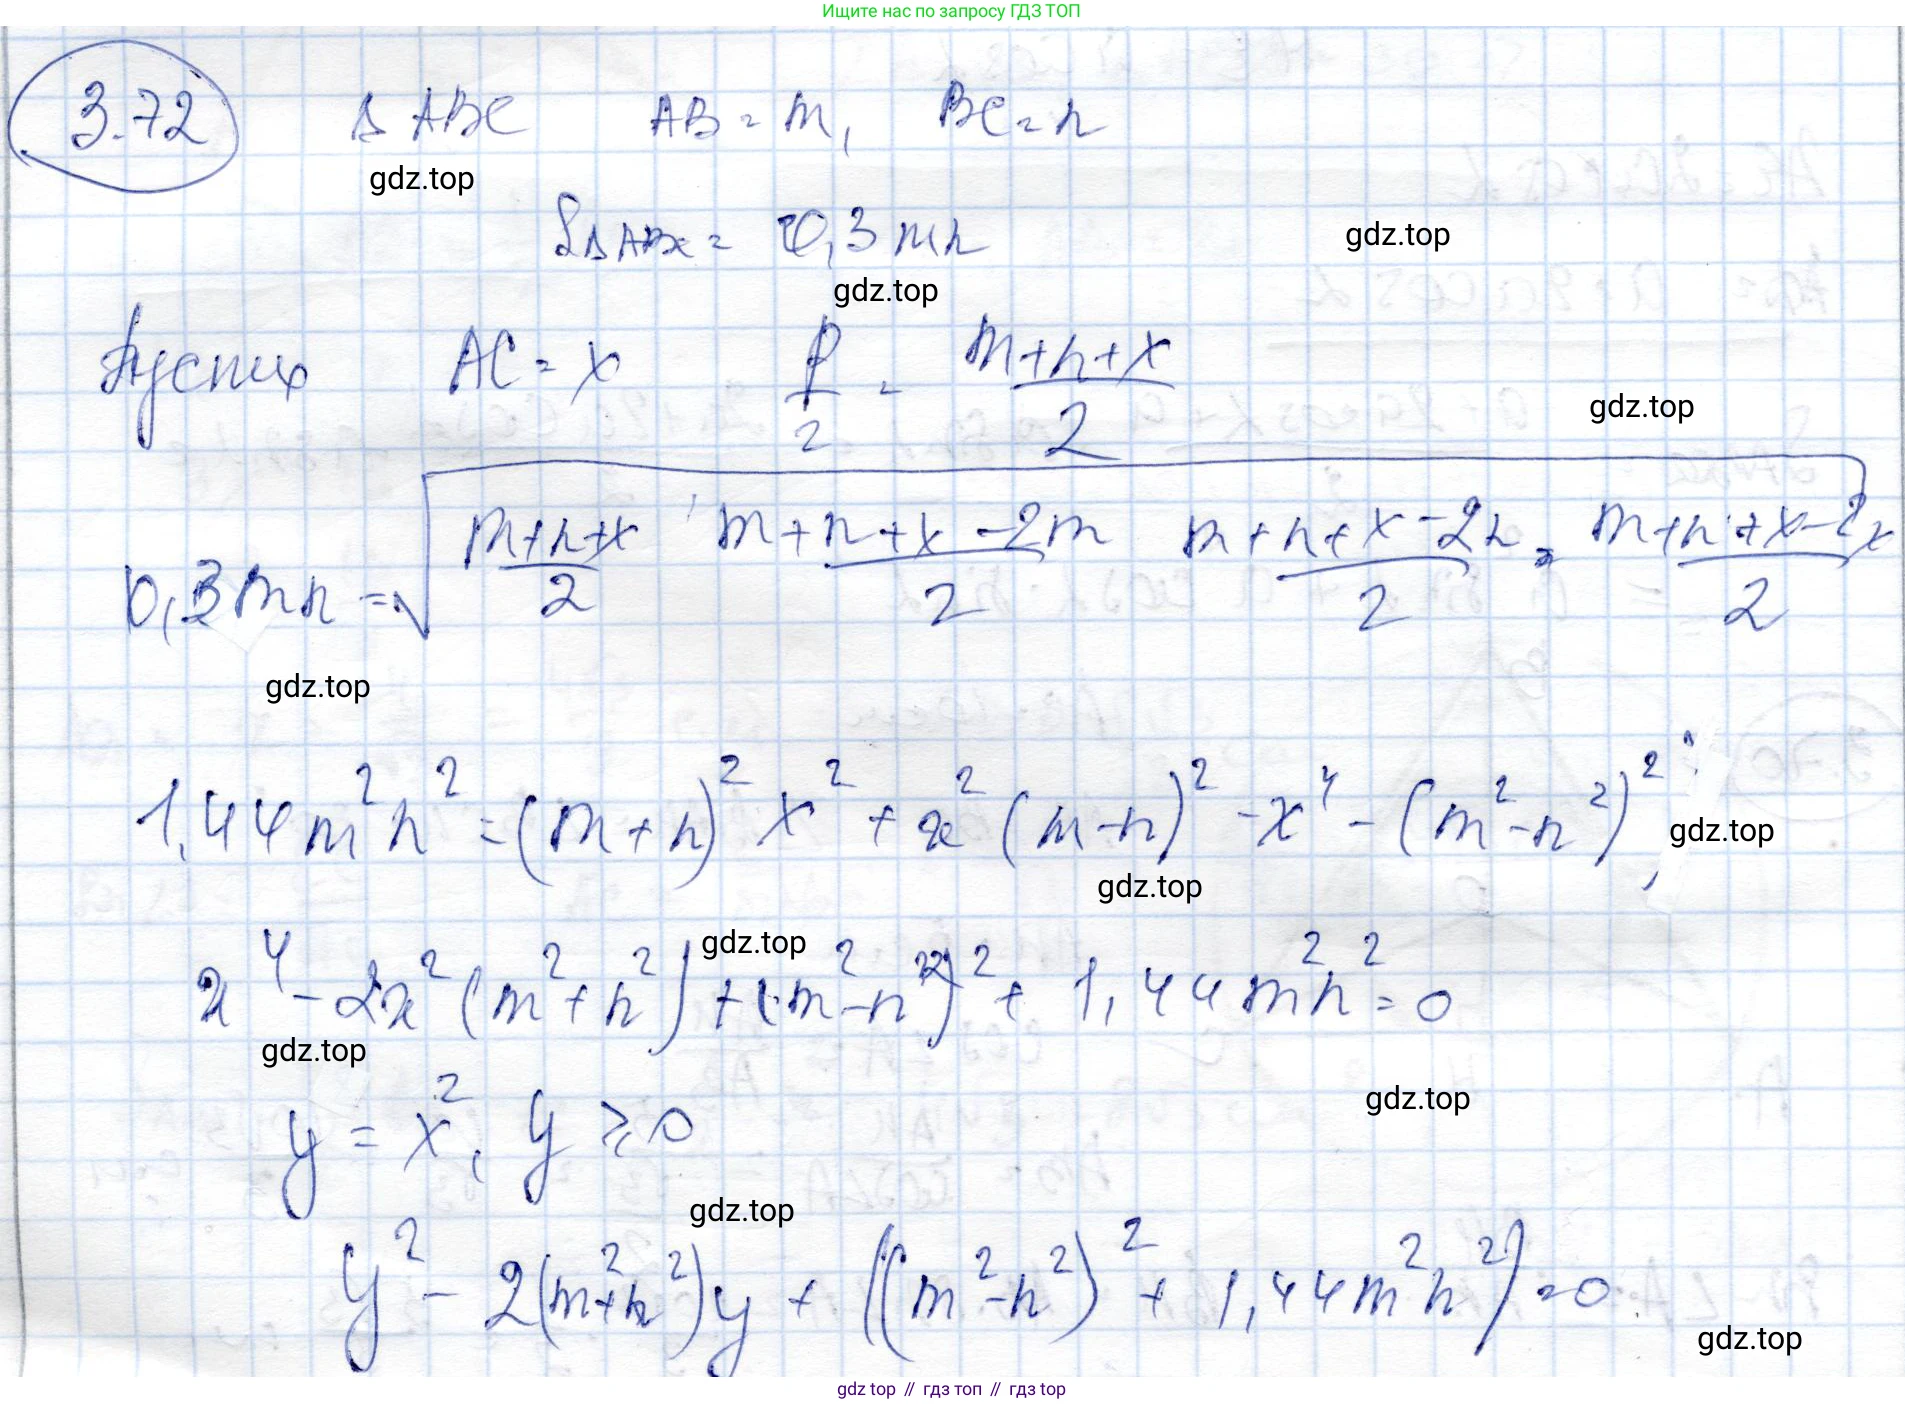 Ищите нас по запросу ГДЗ ТОП
3.72 Δ ABC AB = m, BC = n
gdz.top
S_ΔABC = 0,3 mn
gdz.top
gdz.top
Пусть AC = x P/2 = (m+n+x)/2
gdz.top
0,3mn = √((m+n+x)/2 · (m+n+x-2m)/2 (m+n+x-2n)/2 = (m+n+x-2x)/2)
gdz.top
1,44m²n² = (m+n)²x² + x²(m-n)² - x⁴ - (m²-n²)²;
gdz.top
gdz.top
gdz.top
x⁴ - 2x²(m²+n²) + (m²-n²)² + 1,44m²n² = 0
gdz.top
y = x², y ⩾ 0
gdz.top
gdz.top
y² - 2(m²+n²)y + ((m²-n²)² + 1,44m²n²) = 0
gdz.top
gdz top // гдз топ // гдз top